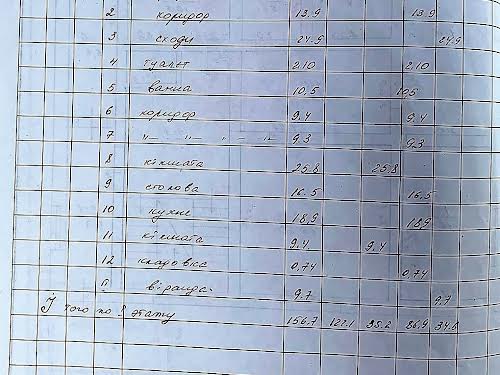 2 коридор 13.9 13.9
3 сходи 24.9 24.9
4 туалет 2.10 2.10
5 ванна 10.5 105
6 коридор 9.4 9.4
7 " " " - " 9.3 9.3
8 кімната 25.8 25.8
9 столова 16.5 16.5
10 кухне 18.9 18.9
11 кімната 9.4 9.4
12 кладовка 0.74 0.74
п віранда 9.7 9.7
І того по І этажу 156.7 122.1 35.2 86.9 34.6